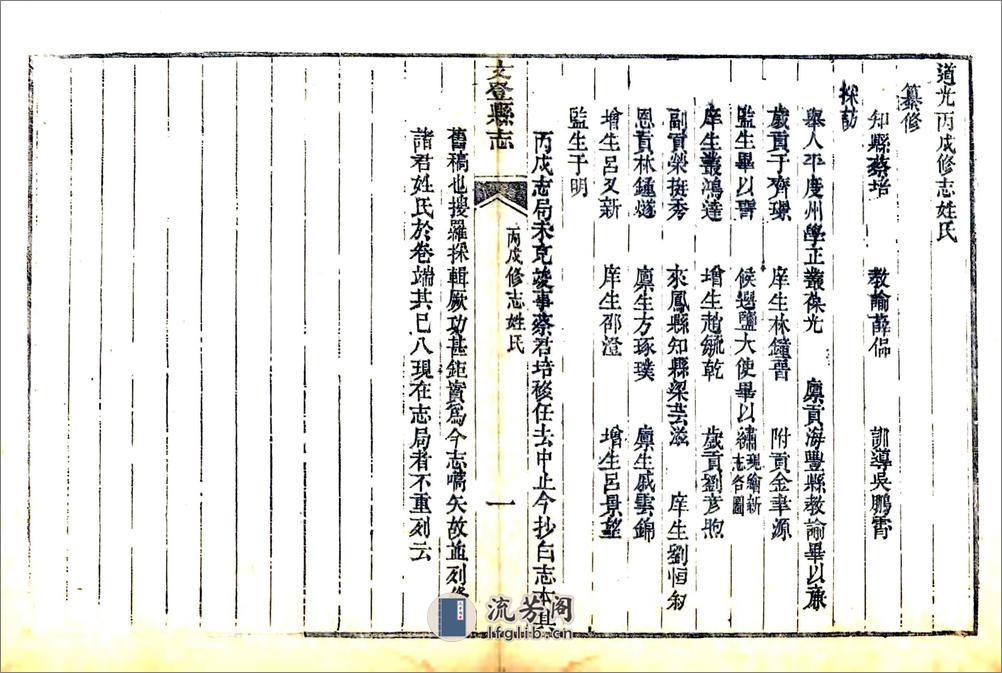 道光丙戌修志姓氏
纂修
知縣蔡培 教諭薛侣 訓導吳鵬霄
採訪
舉人平度州學正叢葆光 廩貢海豐縣教諭畢以
歲貢于齊璟 庠生林鐘晉 附貢金聿源
監生畢以晉 候選鹽大使畢以繡現繪新志各圖
庠生叢鴻逵 增生趙毓乾 歲貢劉彦煦
副貢榮挺秀 來鳳縣知縣梁芸滋 庠生劉恒叙
恩貢林鍾燧 廪生方琢璞 廪生戚雲錦
增生呂又新 庠生邵澄 增生呂景望
監生于明
丙戌志局未克竣事蔡君培移任去中止今抄白志本其
舊稿也搜羅採輯厥功甚鉅實爲今志嚆矢故並列修
諸君姓氏於卷端其已入現在志局者不重列云
文登縣志
丙戌修志姓氏
一
流芳阁
lfglib.cn